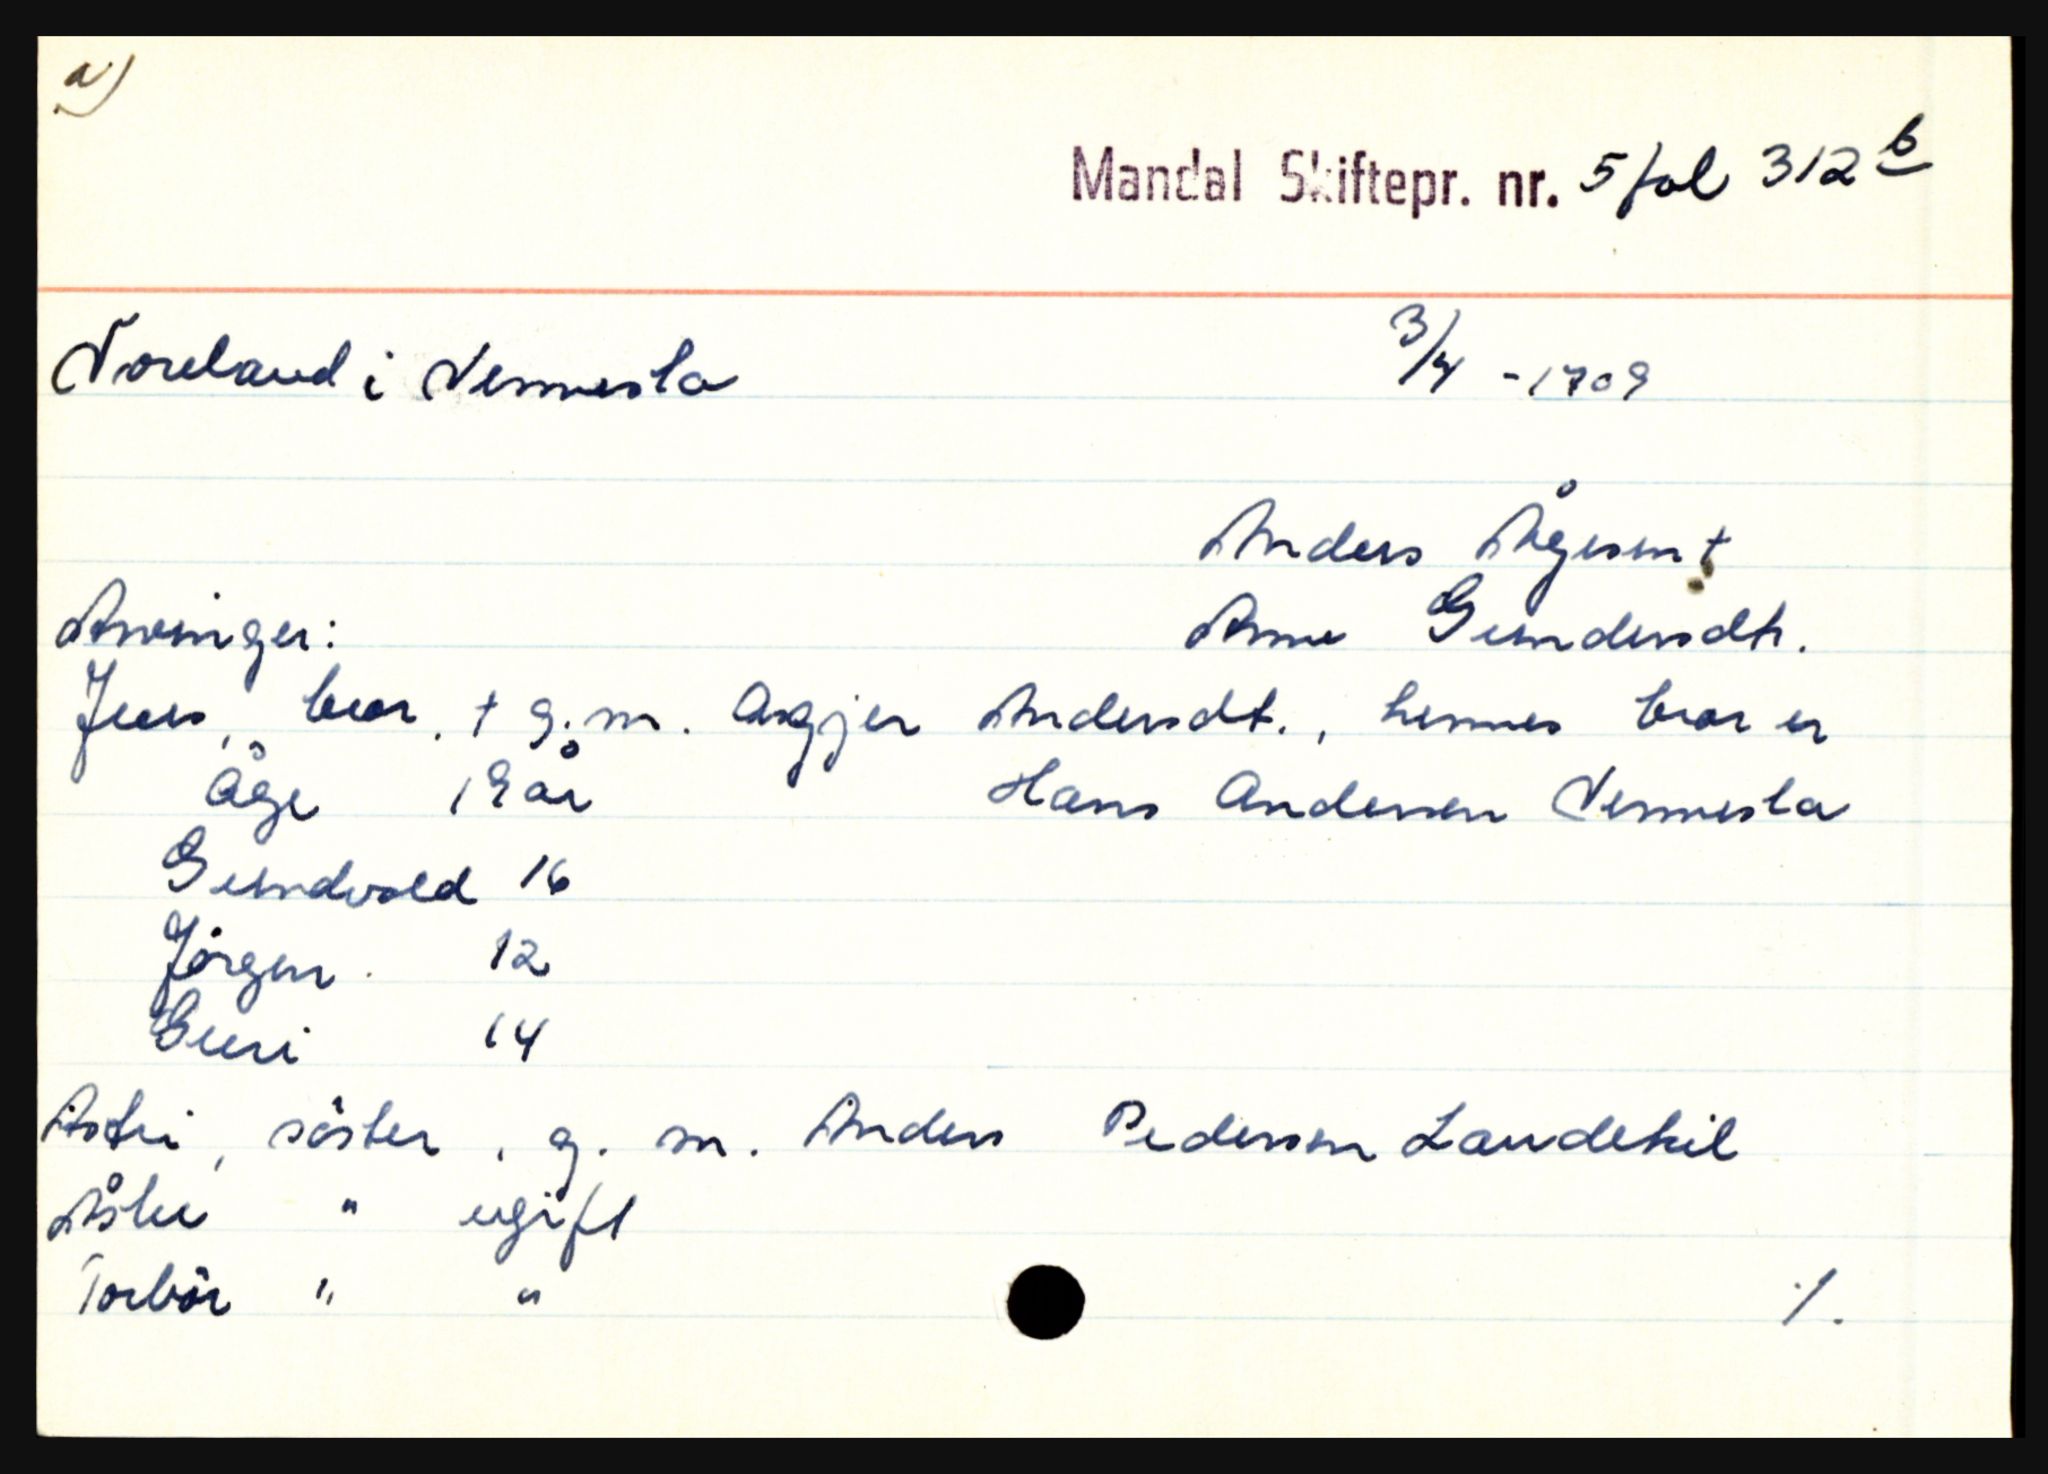 a)
Mandal Skiftepr. nr. 5 fol 312 b
Noreland i Vennesla 3/4 - 1709
Anders Ågesen †
Arvinger: Anne Gundersdtr.
Jens, bror, † g. m. Asgjer Andersdt., hennes bror er
Åge 18 år Hans Andersen Vennesla
Gundvold 16
Jörgen 12
Guri 14
Astri, söster, g. m. Anders Pedersen Landekil
Åshe " ugift
Torbör " "
/.